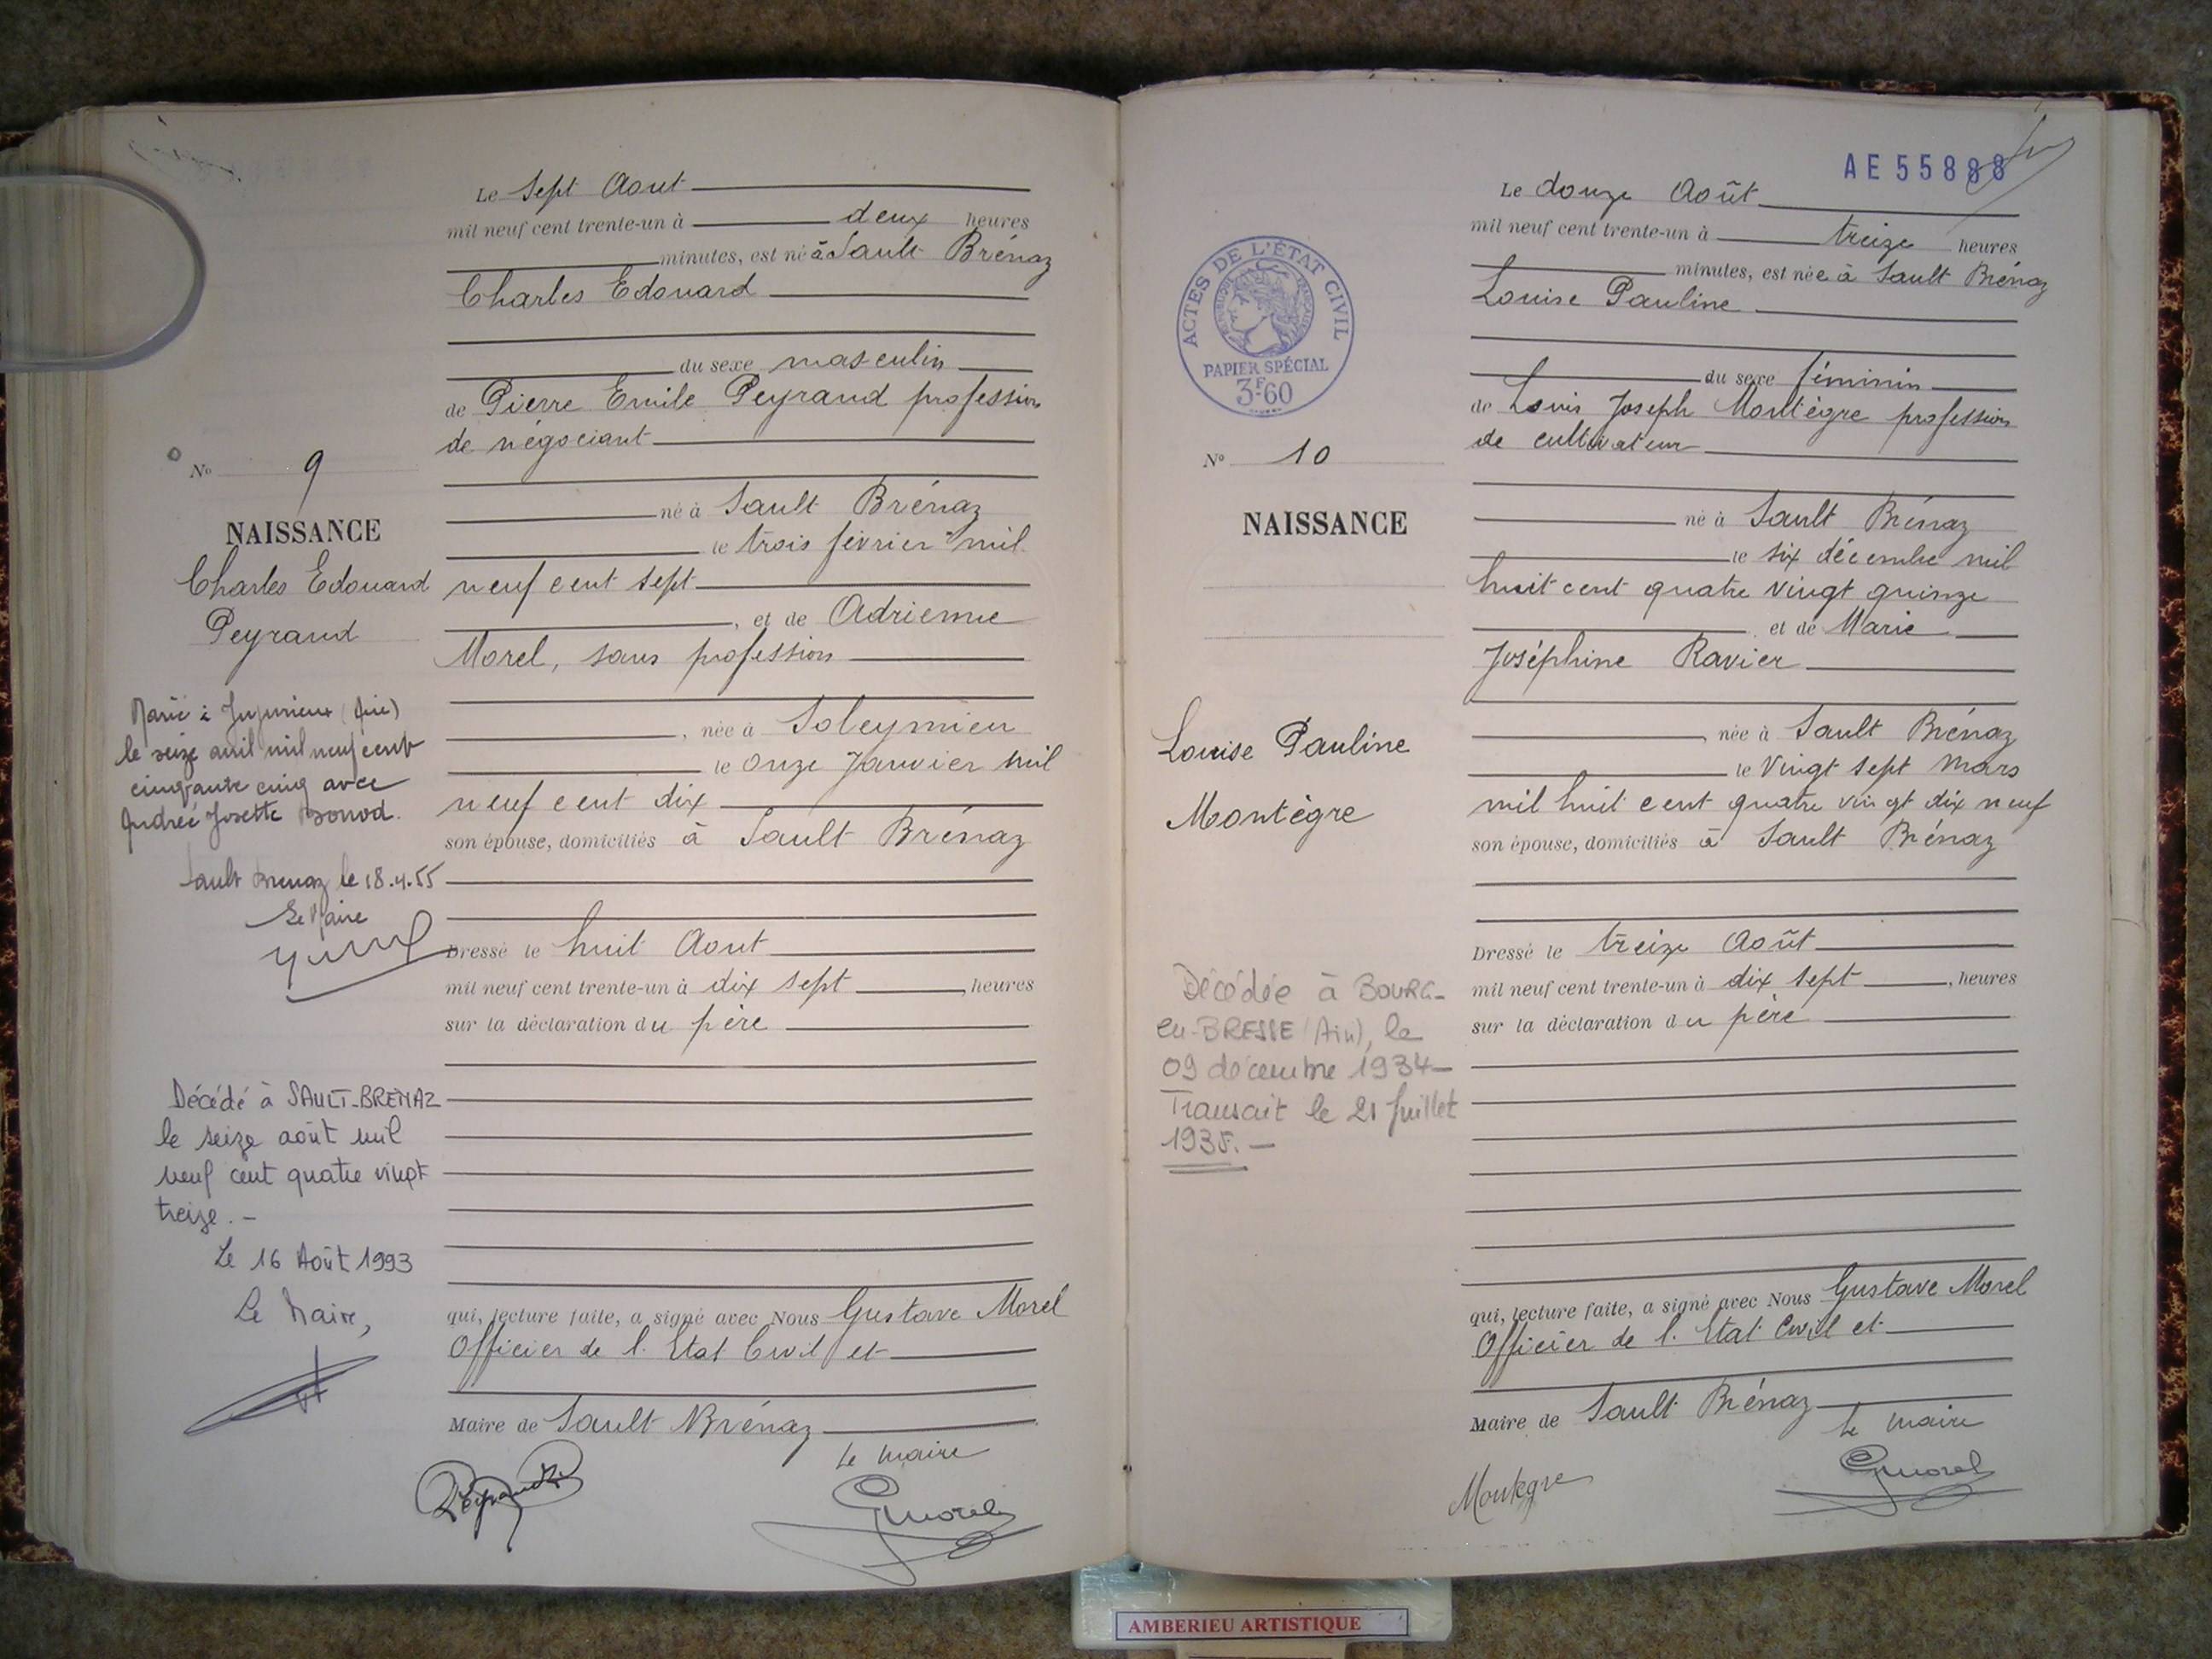 Le sept Aout
mil neuf cent trente-un à deux heures
minutes, est né à Sault Brénaz
Charles Edouard
du sexe masculin
de Pierre Emile Peyraud profession
de négociant
né à Sault Brénaz
le trois février mil
neuf cent sept
, et de Adrienne
Morel, sans profession
, née à Soleymieu
le onze Janvier mil
neuf cent dix
son épouse, domiciliés à Sault Brénaz
Dressé le huit Aout
mil neuf cent trente-un à dix sept, heures
sur la déclaration du père
qui, lecture faite, a signé avec Nous Gustave Morel
Officier de l. Etat Civil et
Maire de Sault Brénaz
Le maire
Peyraud
GMorel
No 9
NAISSANCE
Charles Edouard
Peyraud
Marié à Jujurieux (Ain)
le seize avril mil neuf cent
cinquante cinq avec
Andrée Josette Bonod.
Sault Brenaz le 18.4.55
Le Maire
Décédé à SAULT-BRENAZ
le seize août mil
neuf cent quatre vingt
treize. -
Le 16 Août 1993
Le Maire,
AE 55888
ACTES DE L'ÉTAT CIVIL
RÉPUBLIQUE FRANÇAISE
PAPIER SPÉCIAL
3F60
No 10
NAISSANCE
Louise Pauline
Montègre
Décédée à BOURG-
en-BRESSE (Ain), le
09 décembre 1934-
Transcrit le 21 Juillet
1935. -
Le douze Août
mil neuf cent trente-un à treize heures
minutes, est née à Sault Brénaz
Louise Pauline
du sexe féminin
de Louis Joseph Montègre profession
de cultivateur
né à Sault Brénaz
le six décembre mil
huit cent quatre vingt quinze
, et de Marie
Joséphine Ravier
, née à Sault Brénaz
le Vingt sept Mars
mil huit cent quatre vingt dix neuf
son épouse, domiciliés à Sault Brénaz
Dressé le treize Août
mil neuf cent trente-un à dix sept, heures
sur la déclaration du père
qui, lecture faite, a signé avec Nous Gustave Morel
Officier de l. Etat Civil et
Maire de Sault Brénaz
Le maire
Montegre
GMorel
AMBERIEU ARTISTIQUE